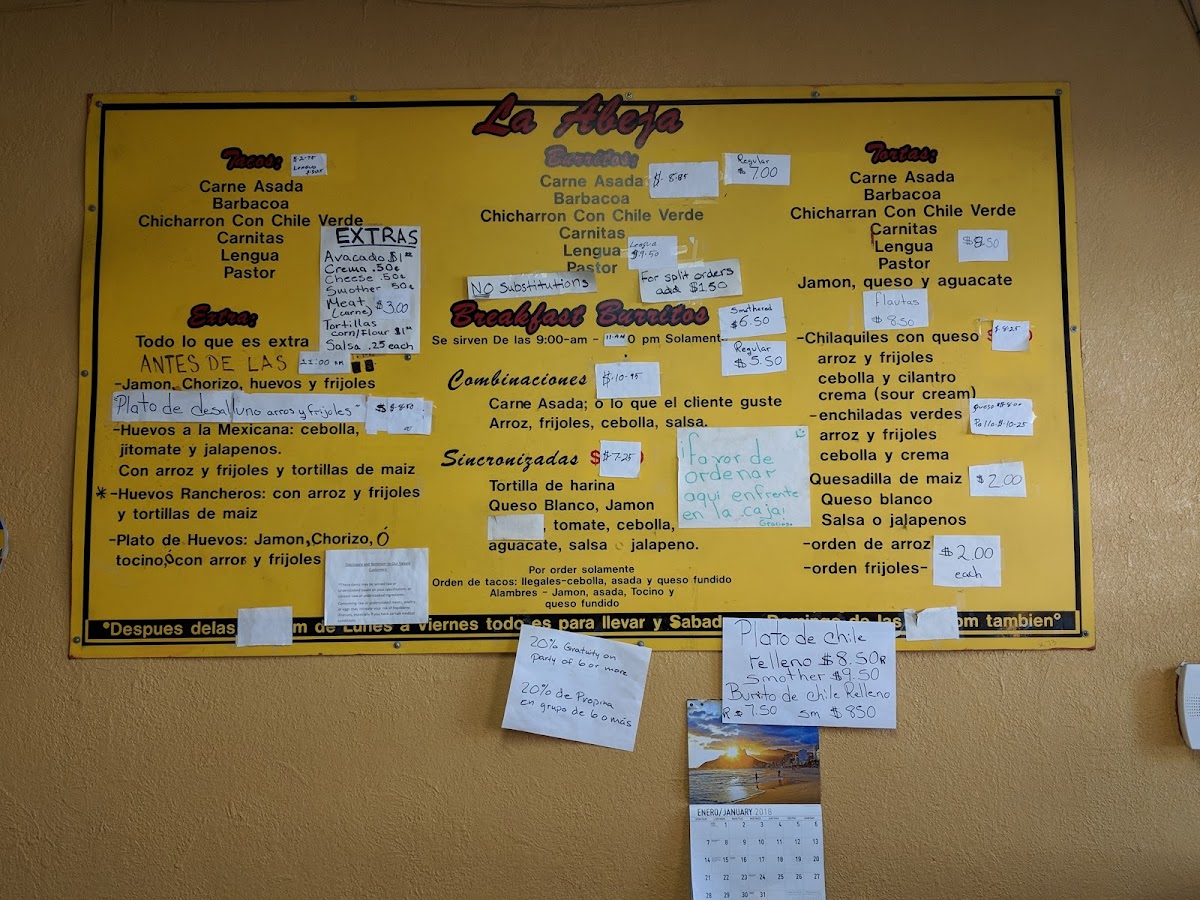 La Abeja
Tacos:
$-2-75
Lengua
Carne Asada
Barbacoa
Chicharron Con Chile Verde
Carnitas
Lengua
Pastor
EXTRAS
Avacado $1.00
Crema .50¢
Cheese .50¢
Smother 50¢
Meat $3.00
(carne)
Tortillas
corn/Flour $1.00
Salsa .25 each
Extra:
Todo lo que es extra
ANTES DE LAS 11:00 am
-Jamon, Chorizo, huevos y frijoles
Plato de desalluno arros y frijoles-
-Huevos a la Mexicana: cebolla,
jitomate y jalapenos.
Con arroz y frijoles y tortillas de maiz
*-Huevos Rancheros: con arroz y frijoles
y tortillas de maiz
-Plato de Huevos: Jamon,Chorizo,Ó
tocino,ócon arroz y frijoles
Burritos:
Regular
$7.00
Carne Asada
$-8-85
Barbacoa
Chicharron Con Chile Verde
Carnitas
Lengua
Lengua
$9.50
Pastor
NO Substitutions
For split orders
add $1.50
Breakfast Burritos
Smothered
$6.50
Se sirven De las 9:00-am - 11-AM 0 pm Solament
Regular
$5.50
Combinaciones $-10-95
Carne Asada; o lo que el cliente guste
Arroz, frijoles, cebolla, salsa.
Sincronizadas $-7-25
Tortilla de harina
Queso Blanco, Jamon
, tomate, cebolla,
aguacate, salsa o jalapeno.
¡favor de
ordenar
aqui enfrente
en la caja¡
Gracias.
Por order solamente
Orden de tacos: Ilegales-cebolla, asada y queso fundido
Alambres - Jamon, asada, Tocino y
queso fundido
Tortas:
Carne Asada
Barbacoa
Chicharran Con Chile Verde
Carnitas
Lengua
$8.50
Pastor
Jamon, queso y aguacate
flautas
$8.50
-Chilaquiles con queso $-8-25
arroz y frijoles
cebolla y cilantro
crema (sour cream)
-enchiladas verdes
Queso $-8.00
Pollo-$-10-25
arroz y frijoles
cebolla y crema
Quesadilla de maiz $2.00
Queso blanco
Salsa o jalapenos
-orden de arroz
-orden frijoles-
$2.00
each
°Despues delas m de Lunes a Viernes todo es para llevar y Sabad Domingo de las om tambien°
20% Gratuity on
party of 6 or more
20% de Propina
en grupo de 6 o más
Plato de chile
relleno $8.50R
smother $9.50
Burrito de chile Relleno
R $7.50 sm $850
ENERO/JANUARY 2018
1 2 3 4 5 6
7 8 9 10 11 12 13
14 15 16 17 18 19 20
21 22 23 24 25 26 27
28 29 30 31